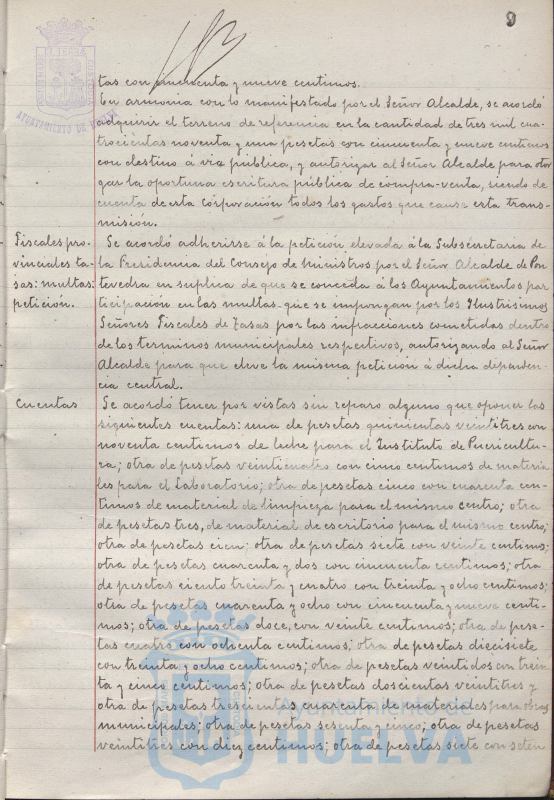 9
AYUNTAMIENTO DE HUELVA
tas con cincuenta y nueve centimos.
En armonia con lo manifestado por el Señor Alcalde, se acordó
adquirir el terreno de referencia en la cantidad de tres mil cua-
trocientas noventa y una pesetas con cincuenta y nueve centimos
con destino á via pública, y autorizar al Señor Alcalde para otor
gar la oportuna escritura pública de compra-venta, siendo de
cuenta de esta Corporación todos los gastos que cause esta trans-
misión.
Fiscales pro-
vinciales ta-
sas: multas:
petición.
Se acordó adherirse á la petición elevada á la Subsecretaria de
la Presidencia del Consejo de Ministros por el Señor Alcalde de Pon
tevedra en suplica de que se conceda á los Ayuntamientos par
ticipación en las multas que se impongan por los Ilustrisimos
Señores Fiscales de Tasas por las infracciones cometidas dentro
de los terminos municipales respectivos, autorizando al Señor
Alcalde para que eleve la misma petición á dicha dependen-
cia central.
Cuentas
Se acordó tener por vistas sin reparo alguno que oponer las
siguientes cuentas: una de pesetas quinientas veintitres con
noventa centimos de leche para el Instituto de Puericultu-
ra; otra de pesetas veinticuatro con cinco centimos de materia
les para el Laboratorio; otra de pesetas cinco con cuarenta cen-
timos de material de limpieza para el mismo centro; otra
de pesetas tres, de material de escritorio para el mismo centro;
otra de pesetas cien; otra de pesetas siete con veinte centimos;
otra de pesetas cuarenta y dos con cincuenta centimos; otra
de pesetas ciento treinta y cuatro con treinta y ocho centimos;
otra de pesetas cuarenta y ocho con cincuenta y nueve centi-
mos; otra de pesetas doce, con veinte centimos; otra de pese-
tas cuatro con ochenta centimos; otra de pesetas diecisiete
con treinta y ocho centimos; otra de pesetas veintidos con trein
ta y cinco centimos; otra de pesetas doscientas veintitres y
otra de pesetas trescientas cuarenta de materiales para obras
municipales; otra de pesetas sesenta y cinco; otra de pesetas
veintitres con diez centimos; otra de pesetas siete con seten
Ayuntamiento de
HUELVA